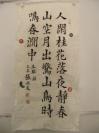 人閒桂花落夜靜春
山空月出驚山鳥時
鳴春澗中